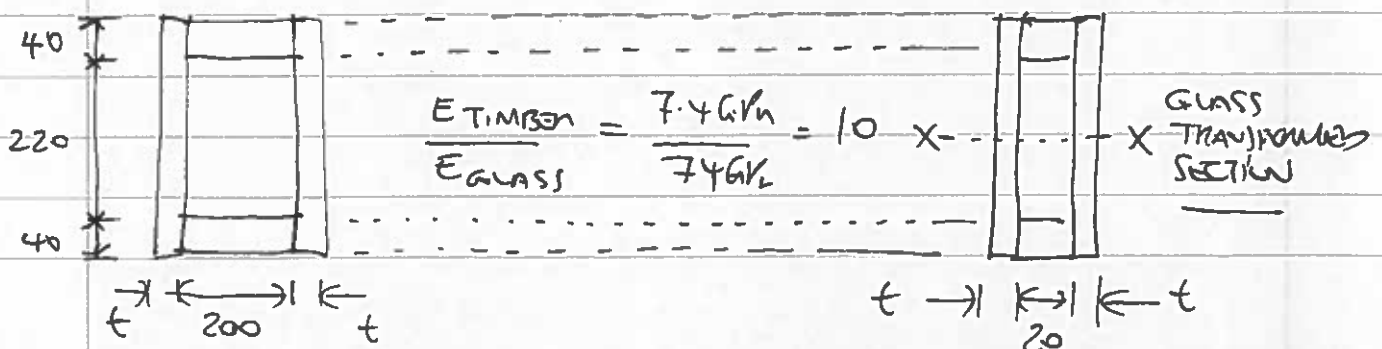 40
220
40
t 200 t
E TIMBER / E GLASS = 7.4 GPa / 74 GPa = 10
X X
GLASS
TRANSFORMED
SECTION
t 20 t